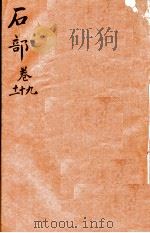 石部
卷
九
十一
mtoou.info